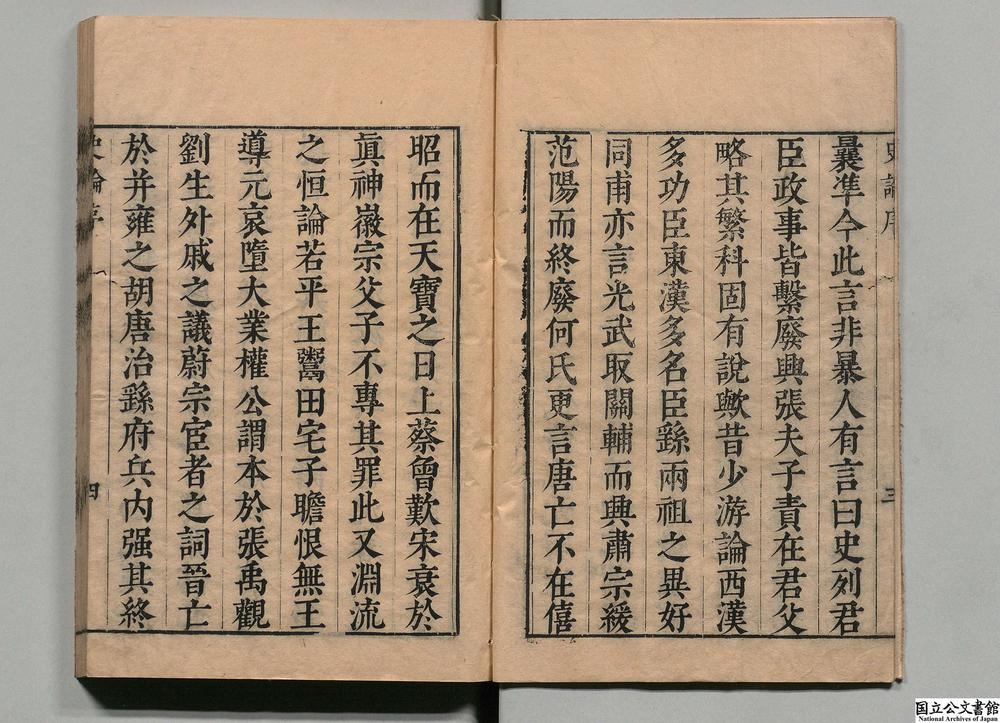 史論序
三
曩準今此言非暴人有言曰史列君
臣政事皆繫廢興張夫子責在君父
略其繁科固有說歟昔少游論西漢
多功臣東漢多名臣繇兩祖之異好
同甫亦言光武取關輔而興肅宗緩
范陽而終廢何氏更言唐亡不在僖
昭而在天寶之日上蔡曾歎宋衰於
眞神徽宗父子不專其罪此又淵流
之恒論若平王鬻田宅子瞻恨無王
導元哀墮大業權公謂本於張禹觀
劉生外戚之議蔚宗宦者之詞晉亡
於并雍之胡唐治繇府兵內强其終
史論序
四
国立公文書館
National Archives of Japan